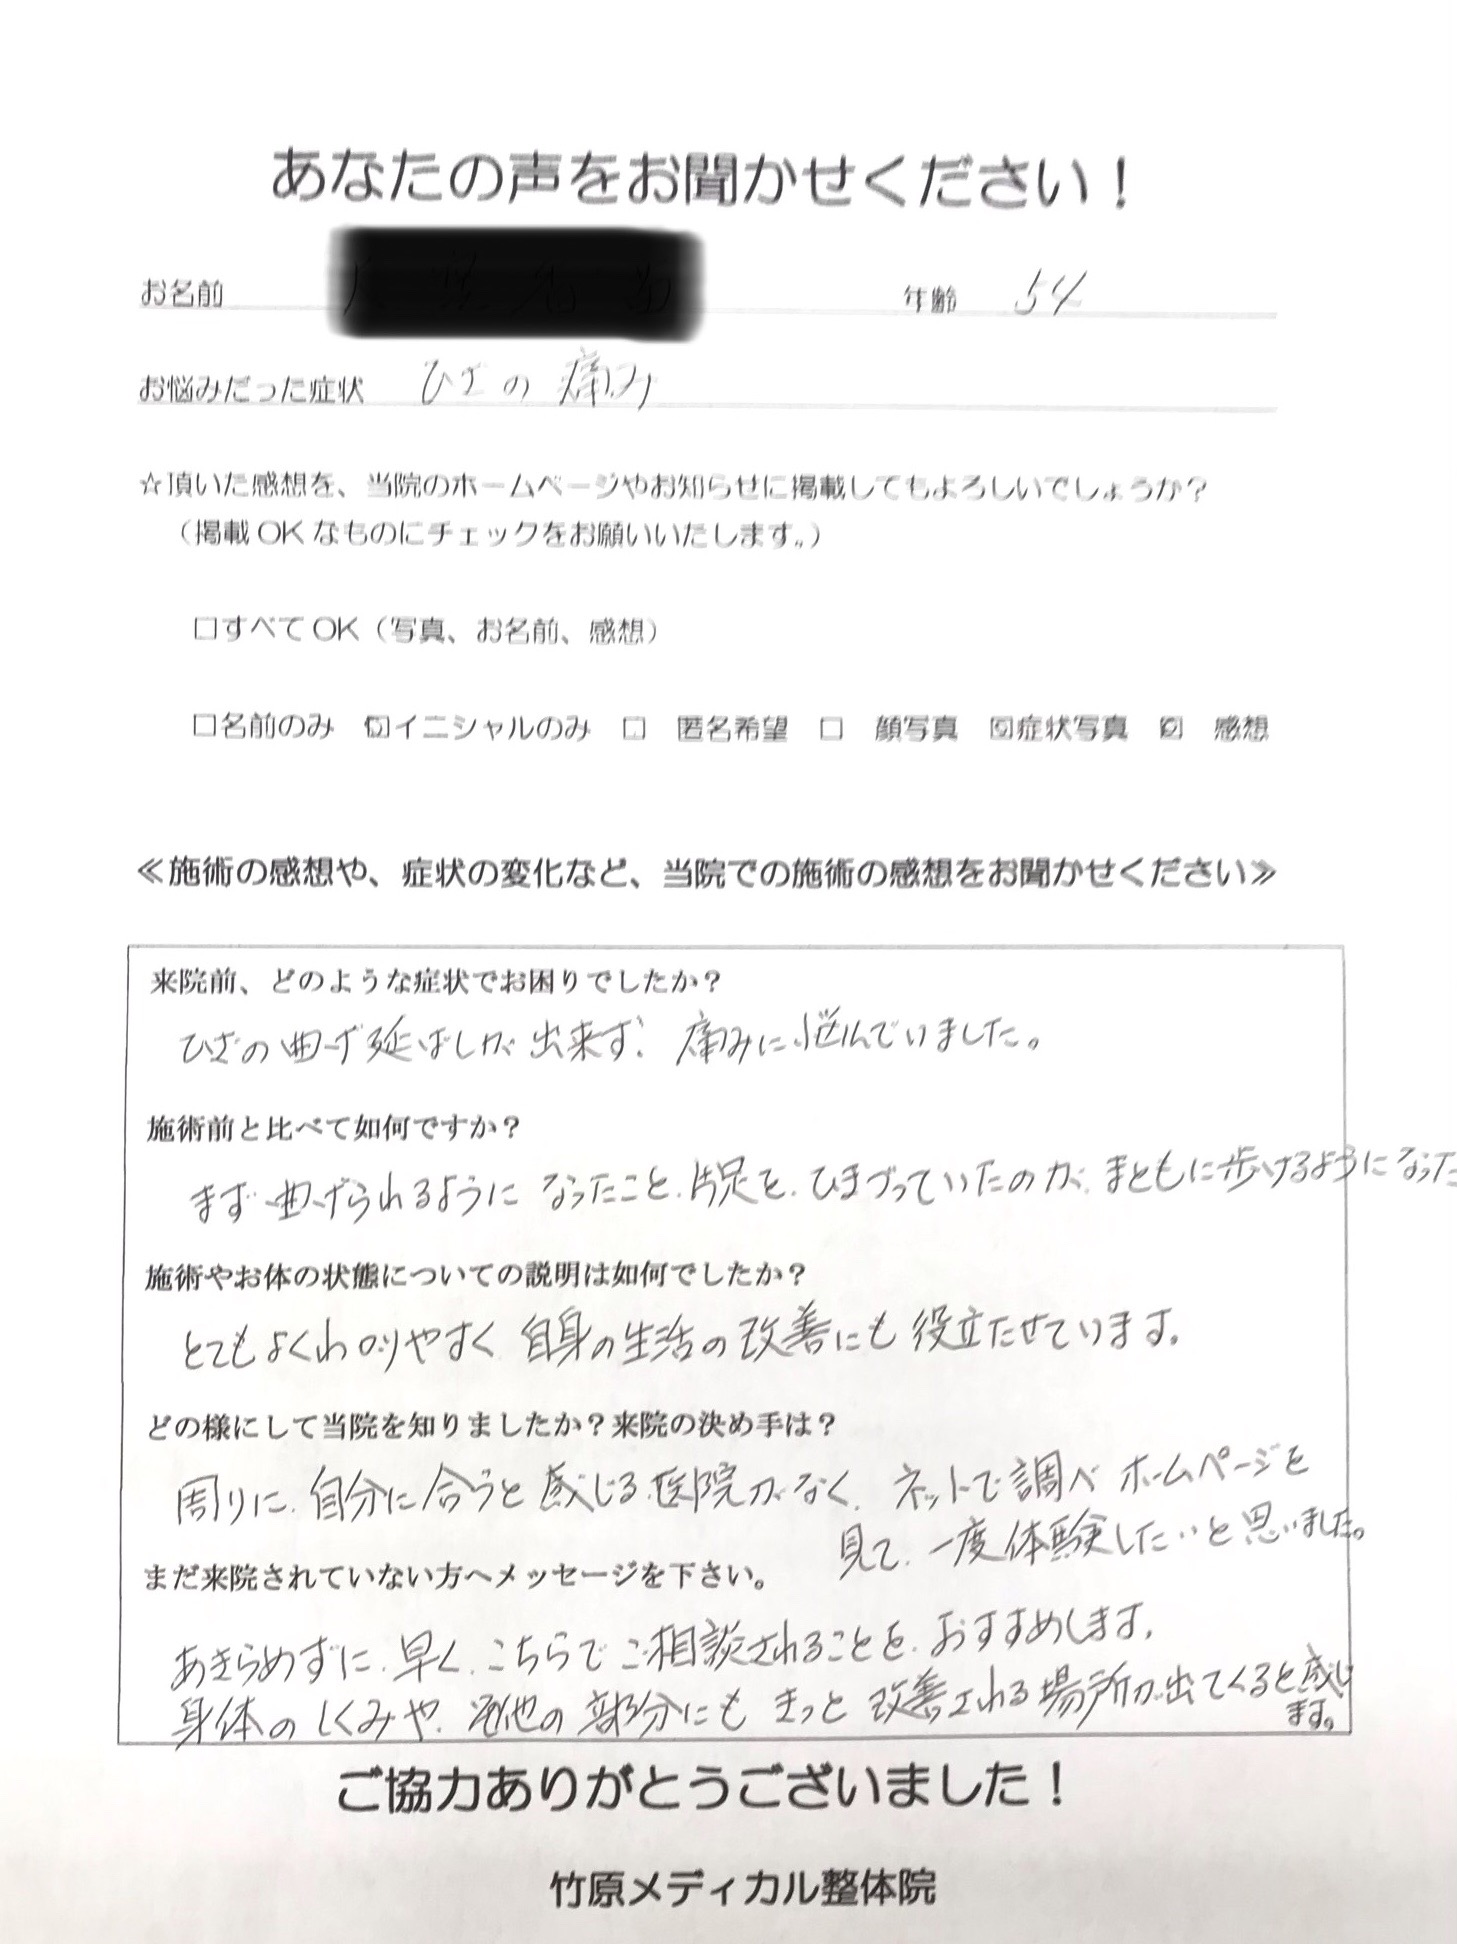 あなたの声をお聞かせください！
お名前 年齢 54
お悩みだった症状 ひざの痛み
☆頂いた感想を、当院のホームページやお知らせに掲載してもよろしいでしょうか？
（掲載OKなものにチェックをお願いいたします。）
□すべてOK（写真、お名前、感想）
□名前のみ ☑イニシャルのみ □ 匿名希望 □ 顔写真 ☑症状写真 ☑ 感想
≪施術の感想や、症状の変化など、当院での施術の感想をお聞かせください≫
来院前、どのような症状でお困りでしたか？
ひざの曲げ延ばしが出来ず、痛みに悩んでいました。
施術前と比べて如何ですか？
まず曲げられるようになったこと、片足を、ひきづっていたのが、まともに歩けるようになった
施術やお体の状態についての説明は如何でしたか？
とてもよくわかりやすく 自身の生活の改善にも役立たせています。
どの様にして当院を知りましたか？来院の決め手は？
周りに、自分に合うと感じる医院がなく、ネットで調べ ホームページを
見て、一度体験したいと思いました。
まだ来院されていない方へメッセージを下さい。
あきらめずに、早く、こちらでご相談されることを、おすすめします。
身体のしくみや、他の部分にも きっと 改善される場所が出てくると感じ
ます。
ご協力ありがとうございました！
竹原メディカル整体院